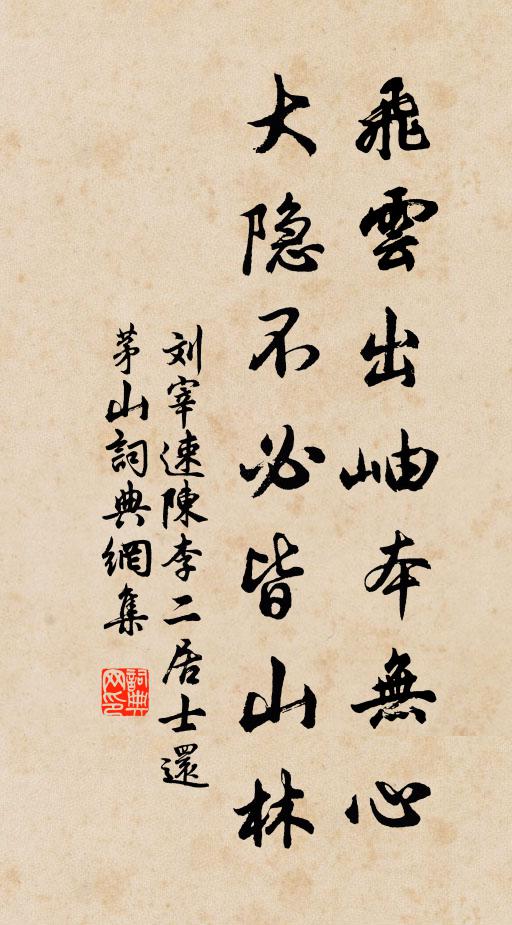 飛雲出岫本無心
大隐不必皆山林
刘宰速陳李二居士還
茅山詞典網集
詞典网印